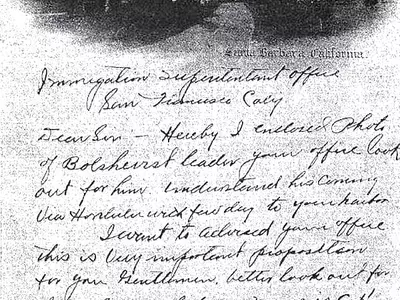 Santa Barbara, California.
Immegration Superentantant office
San Francisco Caly
Dear Sir – Hereby I enclosed Photo
of Bolshevist leader your office look
out for him. understand his coming
via Honlulu with few day to your harbor
I want to advised your office
this is very important proposition
for you Gentlemen, better look out for